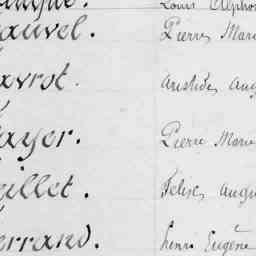 Louis Alphon
auvel. Pierre Mari
avrot. Aristide, Aug
ayer. Pierre Marie
illet. Félix, Augu
errand. Henri Eugène